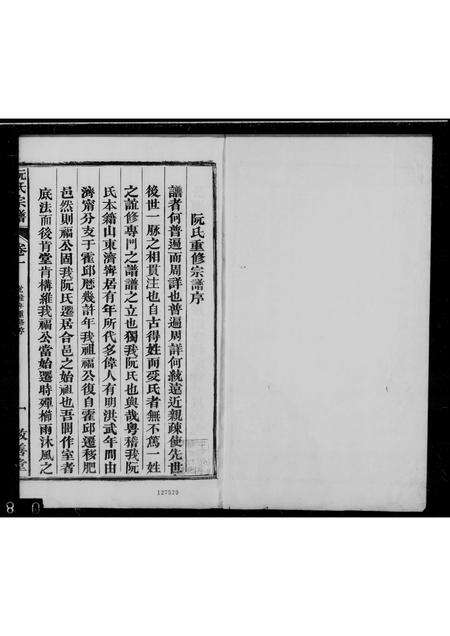 阮氏重修宗譜序
譜者何普遍而周詳也普遍周詳何統遠近親疎使先世
後世一脉之相貫注也自古得姓而受氏者無不篤一姓
之誼修專門之譜譜之立也獨我阮氏也與哉粵稽我阮
氏本籍山東濟甯居有年所代多偉人有明洪武年間由
濟甯分支于霍邱歷幾計年我祖福公復自霍邱遷移肥
邑然則福公固我阮氏遷居合邑之始祖也吾聞作室者
底法而後肯堂肯構維我福公當始遷時襗櫛雨沐風之
阮氏宗譜
卷一
一
敦善堂
127520
8 0